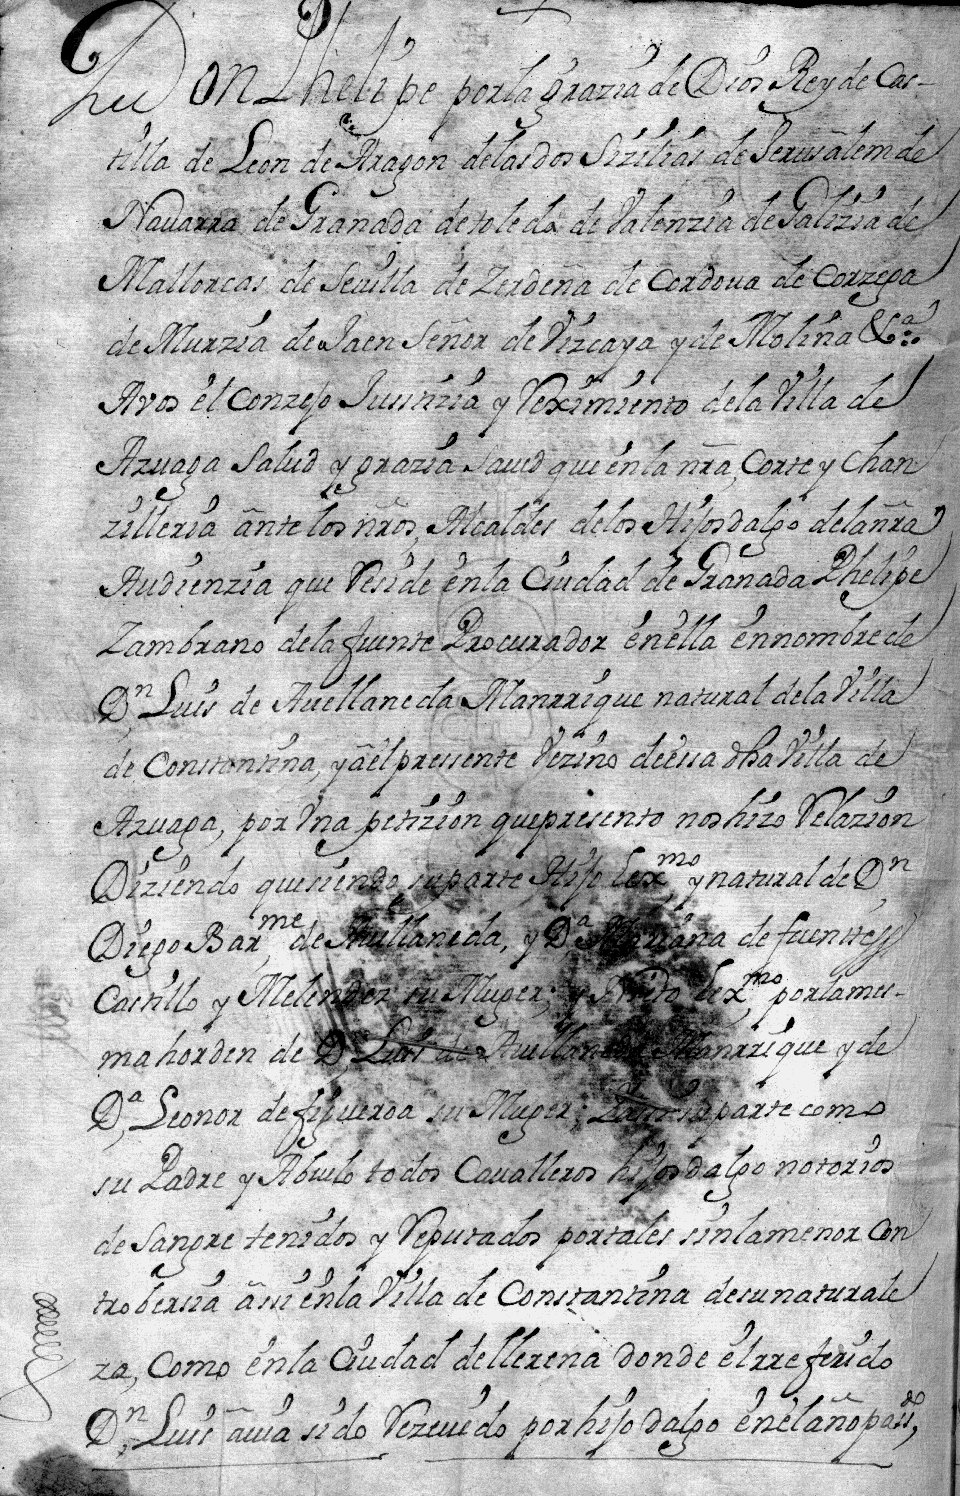 Don Phelipe por la grazia de Dios Rey de Cas-
tilla de Leon de Aragon de las dos Sizilias de Jerusalem de
Navarra de Granada de toledo de Valenzia de Galizia de
Mallorcas de Sevilla de Zerdeña de Cordova de Corzega
de Murzia de Jaen Señor de Vizcaya y de Molina &ª
A vos el Conzejo Justizia y Reximiento de la Villa de
Azuaga Salud y grazia saved que en la nrã Corte y Chan
zilleria ante los nrõs Alcaldes de los Hijosdalgo de la nrã
Audienzia que Reside en la Ciudad de Granada Phelipe
Zambrano de la fuente Procurador en ella en nombre de
Dn Luis de Avellaneda Manrrique natural de la Villa
de Constantina, y al pressente Vezino de essa dha Villa de
Azuaga, por Una petizion que presento nos hizo Relazion
Diziendo que siendo su parte Hijo lexmo y natural de Dn
Diego Barme de Avellaneda, y Da Mariana de fuentes
Castillo y Melendez su Muger; y Nieto lexmo por la mis-
ma horden de Dn Luis de Avellaneda Manrrique y de
Da Leonor de figueroa su Muger; su parte como
su Padre y Abuelo todos Cavalleros hijosdalgo notorios
de Sangre tenidos y Reputados por tales sin la menor Con
trobersia assi en la Villa de Constantina de su naturale
za, Como en la Ciudad de llerena donde el rreferido
Dn Luis avia sido Rezevido por hijodalgo en el año passdo